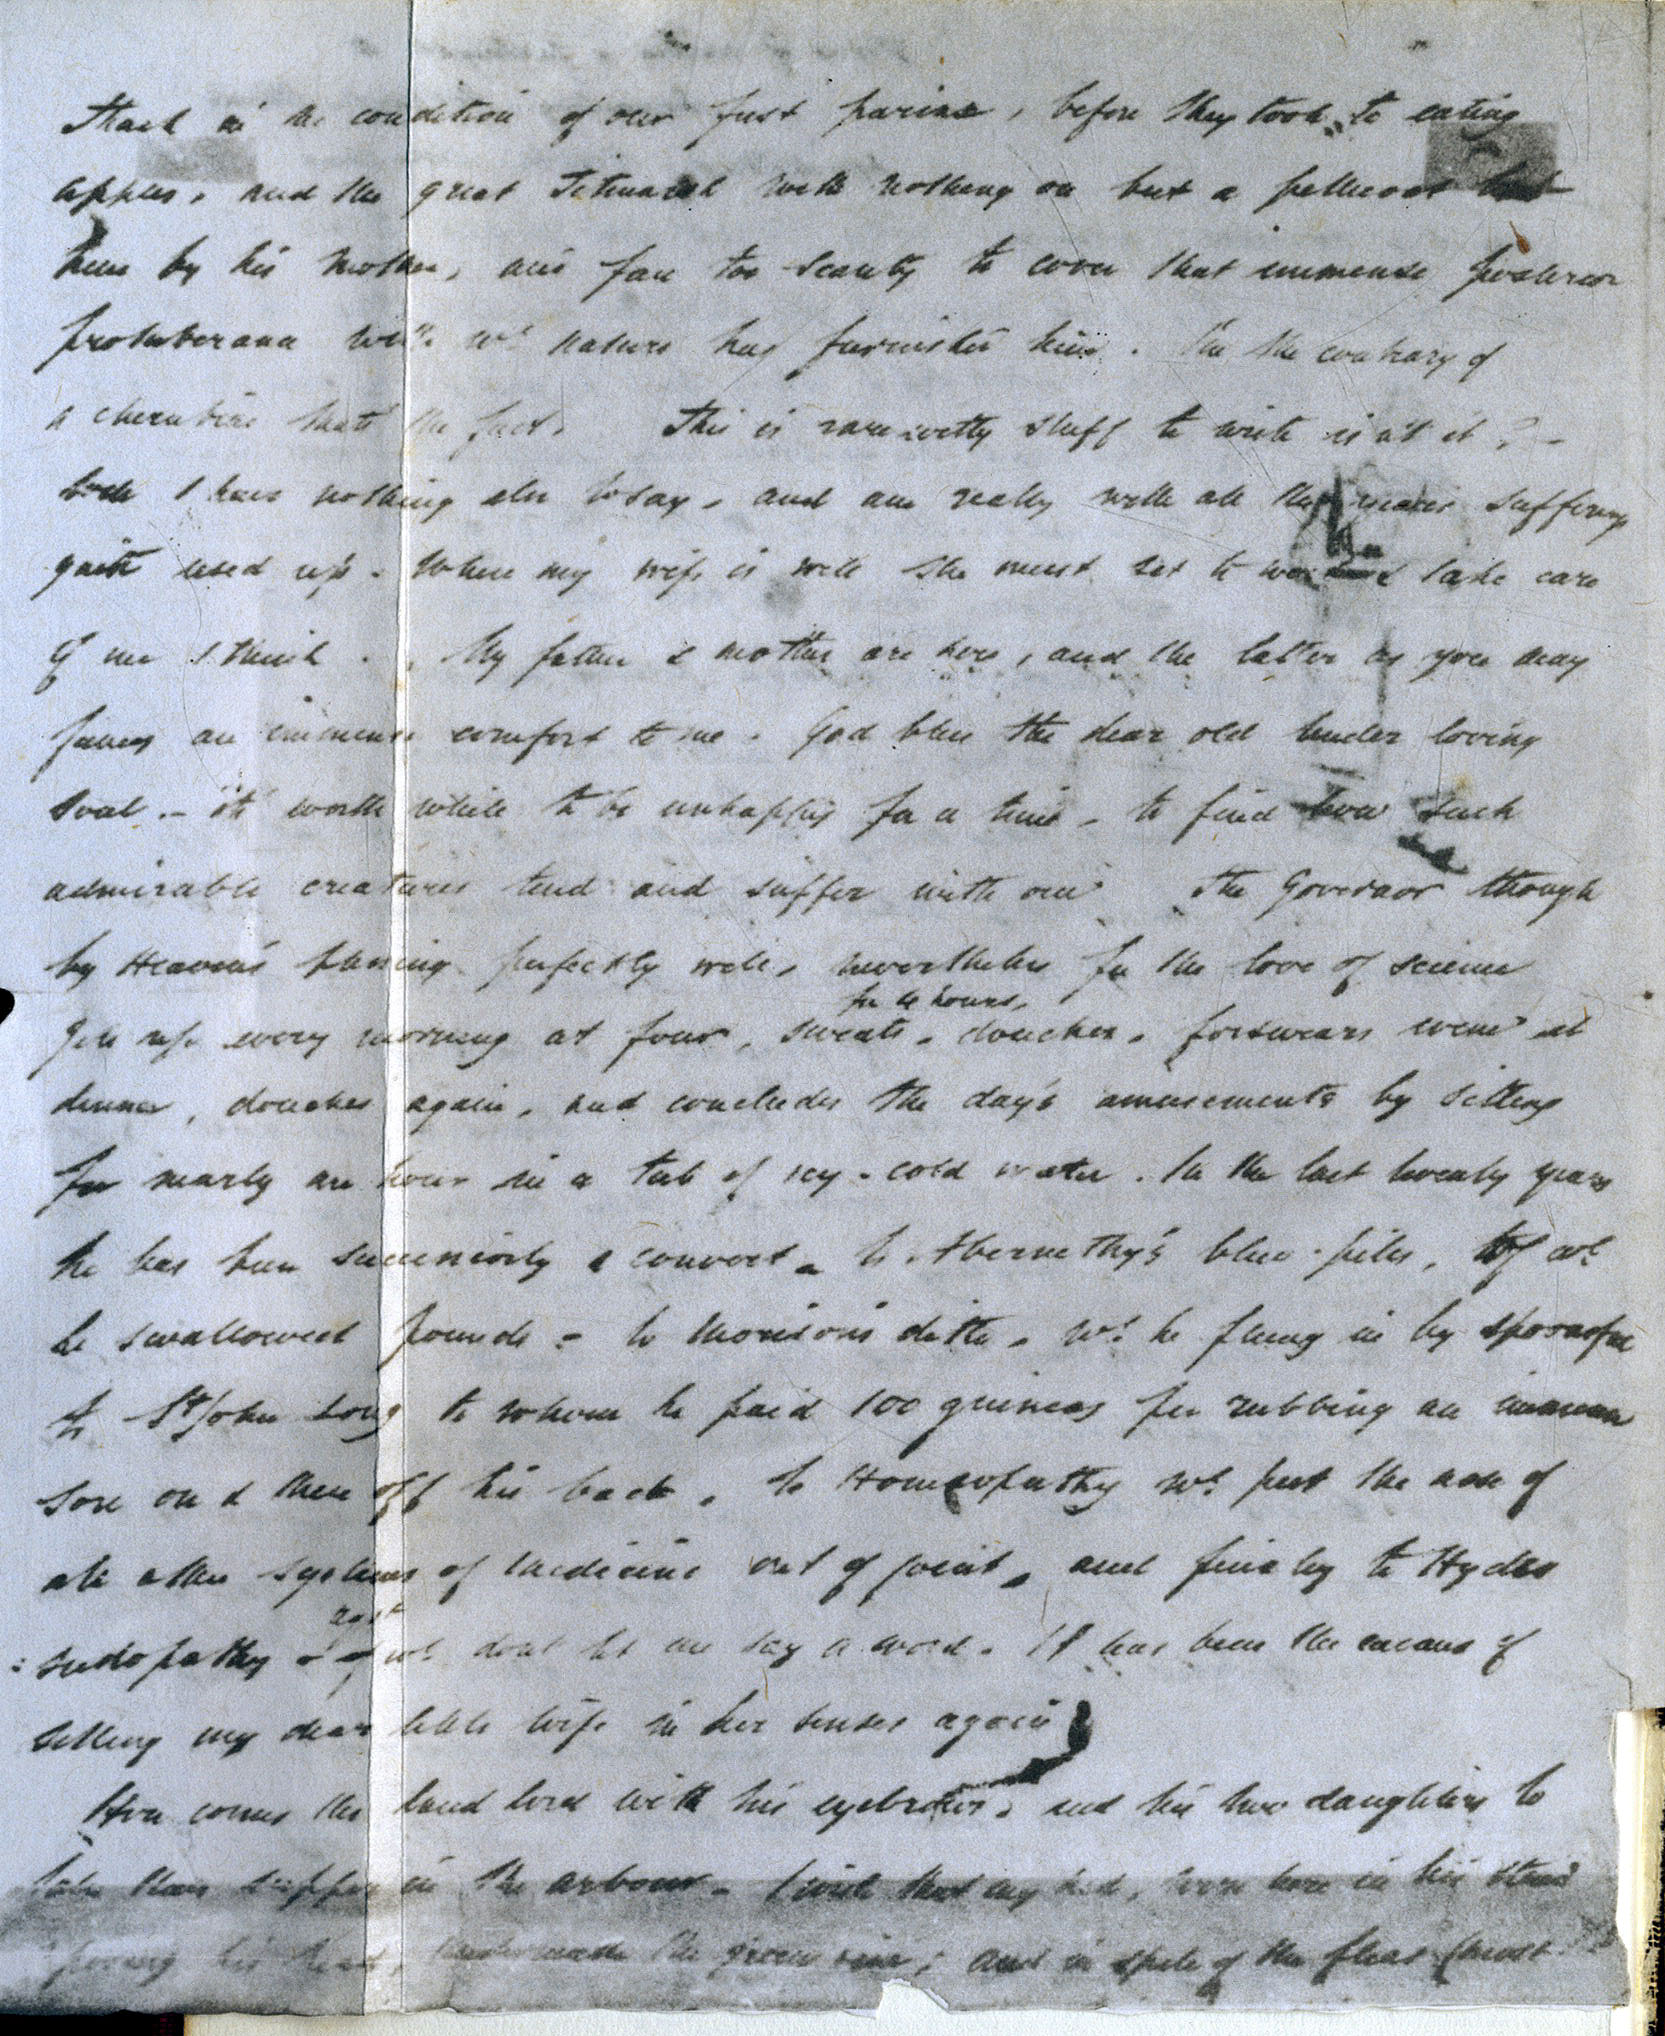 Thack in the condition of our first parins, before they took to eating
apples, and the great Titmarsh with nothing on but a petticoat lent
him by his mother, and far too scanty to cover that immense posterior
protuberance with wh nature has furnished him.    the contrary of
a cherubim that's the fact.    This is rare witty stuff to write isn't it? -
but I have nothing else to say, and am really with all the years suffering
quite used up. When my wife is well she must set to work & take care
of me I think. My father & mother are here, and the latter as you may
fancy an immense comfort to me. God bless the dear old tender loving
soul - it's worth while to be unhappy for a time, to find how such
admirable creatures tend and suffer with one    The Governor though
by Heaven's blessing perfectly well, nevertheless for the love of science
gets up every morning at four, sweats for 4 hours, douches, forswears wine at
dinner, douches again, and concludes the day's amusements by sitting
for nearly an hour in a tub of icy-cold water. In the last twenty years
he has been successively a convert - to Abernethy's blue-pills, of wh
he swallowed pounds - to Morison's ditto, wh he flung in by spoonsful
to St John Long to whom he paid 100 guineas for rubbing an immense
sore on & then off his back, to Homeopathy wh put the nose of
all other systems of medicine out of joint, and finally to Hydro
:sudopathy & agst wh dont let me say a word. It has been the means of
setting my dear little wife in her senses again
Here comes the land lord with his eyebrows, and his two daughters to
take their supper in the arbour - I wish that my           were here in his stead
           his head,      the green vine; and in spite of the fleas (most